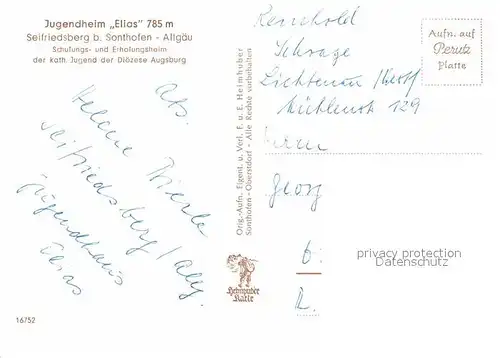 Jugendheim „Elias" 785 m
Seifriedsberg b. Sonthofen - Allgäu
Schulungs- und Erholungsheim
der kath. Jugend der Diözese Augsburg
Abs.
Helene
Seifriedsberg / Allg.
Jugendhaus
Elias
16752
Orig.-Aufn. Eigent. u. Verl. E. u. E. Heimhuber
Sonthofen - Oberstdorf - Alle Rechte vorbehalten
Heimhuber
Karte
Aufn. auf
Perutz
Platte
Reinhold
Schrage
Lichtenau / Westf
Mühlenstr 129
Georg
privacy protection
Datenschutz